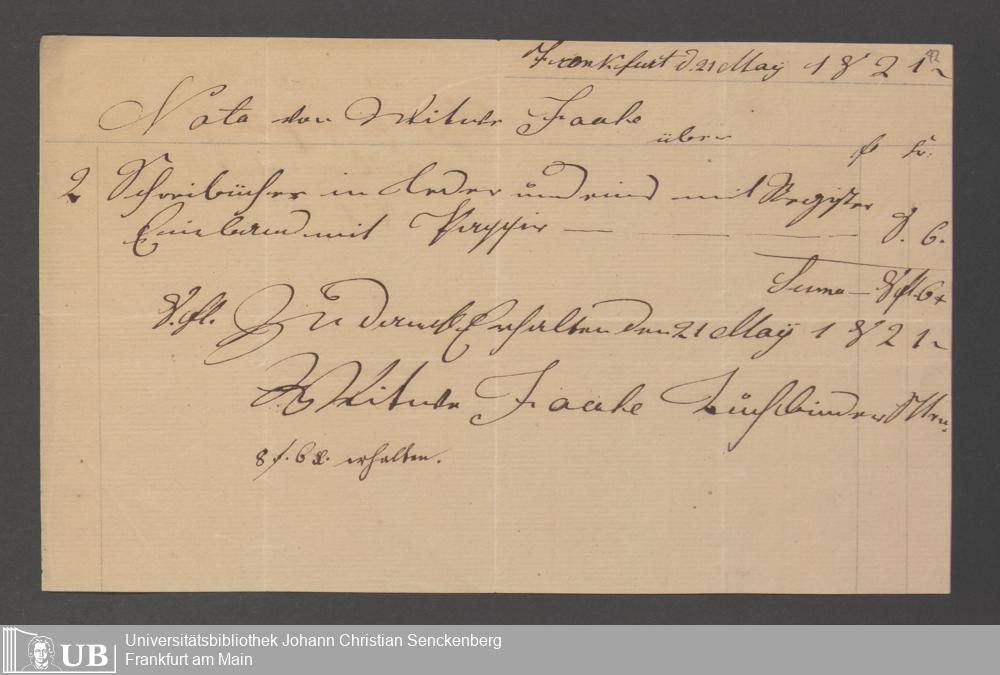 42
Frankfurt d. 21 May 1821
Nota von Witwe Haake
über
f kr.
2 Schreibücher in leder und eins mit Register
Einband mit Pappir — — — 8. 6.
Suma — 8 fl. 6 x
8. fl. Zu danck Erhalten den 21 May 1821
Witwe Haake Buchbinder
8 f. 6 x. erhalten.
UB Universitätsbibliothek Johann Christian Senckenberg
Frankfurt am Main